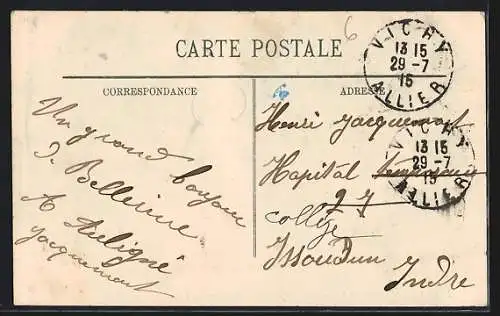 6
CARTE POSTALE
VICHY
13 15
29 - 7
15
ALLIER
CORRESPONDANCE
ADRESSE
VICHY
13 15
29 - 7
15
ALLIER
Un grand bonjour
de Bellerive
A Auligné
Jacquemont
Henri Jacquemont
Hopital Temporaire
27
collège
Issoudun Indre